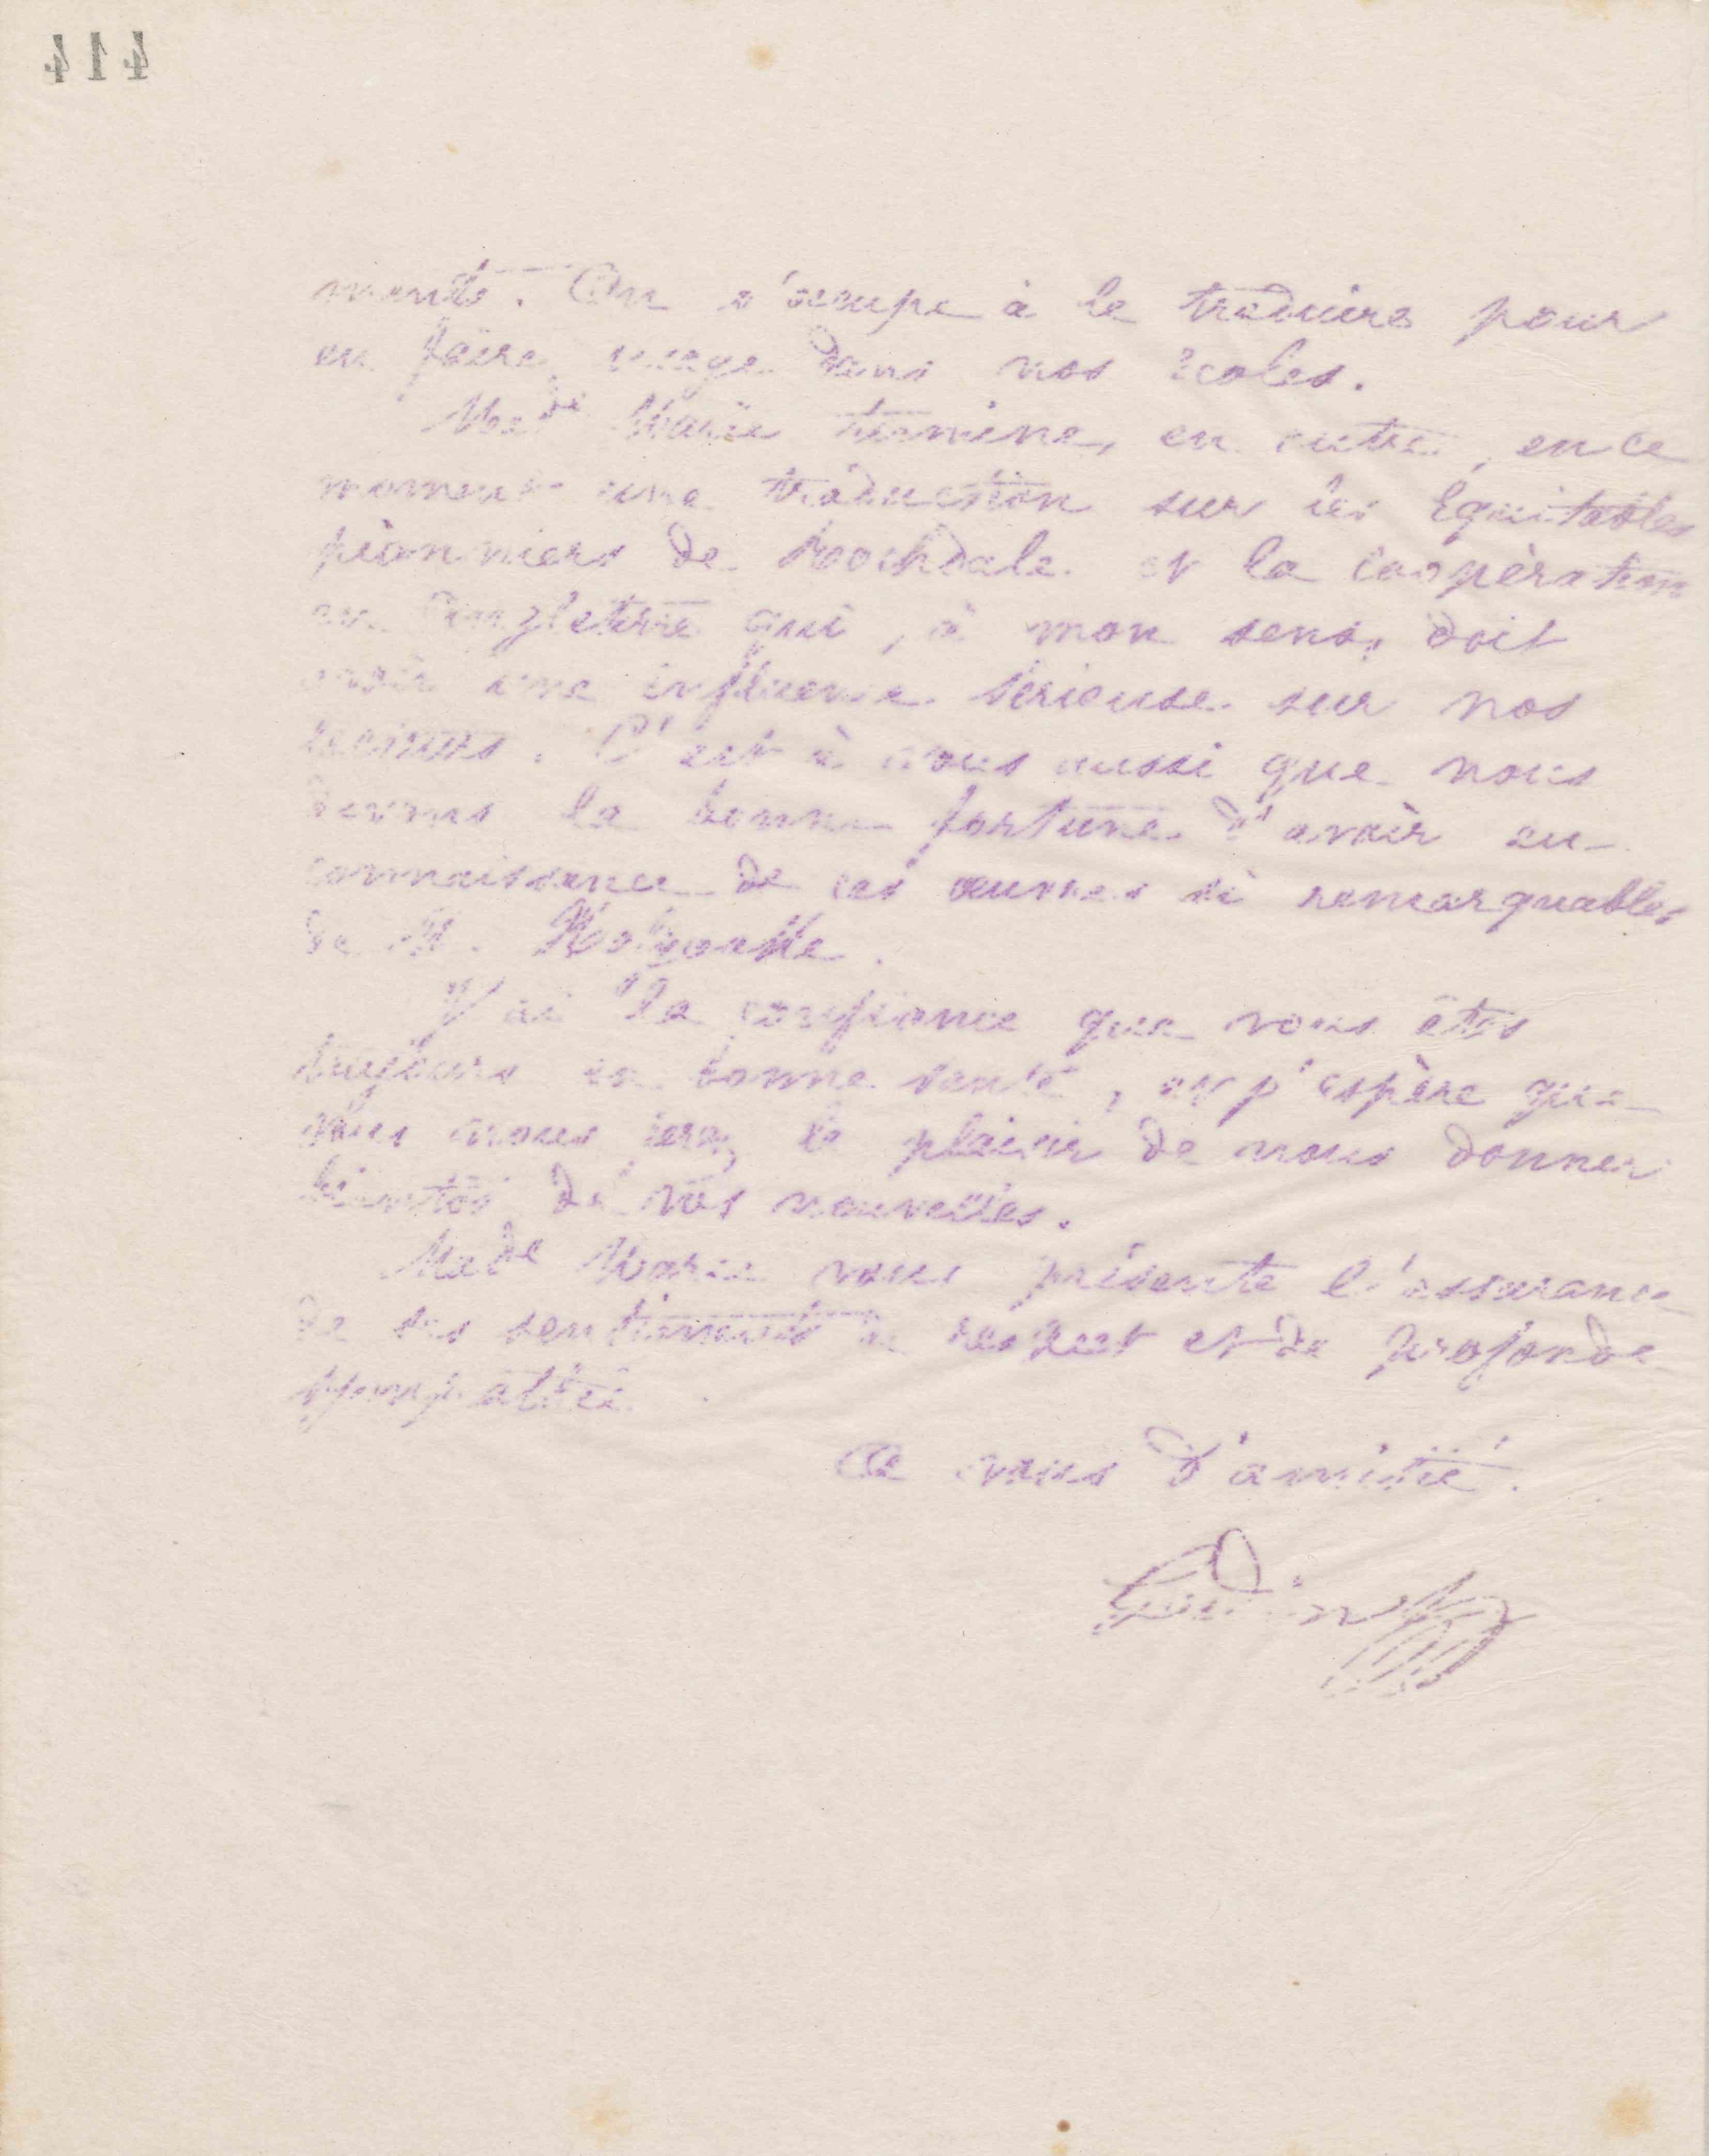 414
ments. On s'occupe à le traduire pour
en faire usage dans nos écoles.
Made Marie termine, en outre, en ce
moment une traduction sur les Equitables
pionniers de Roochdale et la coopération
en Angleterre qui, à mon sens, doit
avoir une influence sérieuse sur nos
C'est à vous aussi que nous
devons la bonne fortune d'avoir eu
connaissance de ces œuvres si remarquables
de M. Holyoake.
J'ai la confiance que vous êtes
toujours en bonne santé, et j'espère que
vous nous ferez le plaisir de nous donner
bientôt de vos nouvelles.
Made Marie vous présente l'assurance
de ses sentiments de respect et de profonde
sympathie.
A vous d'amitié.
Godin